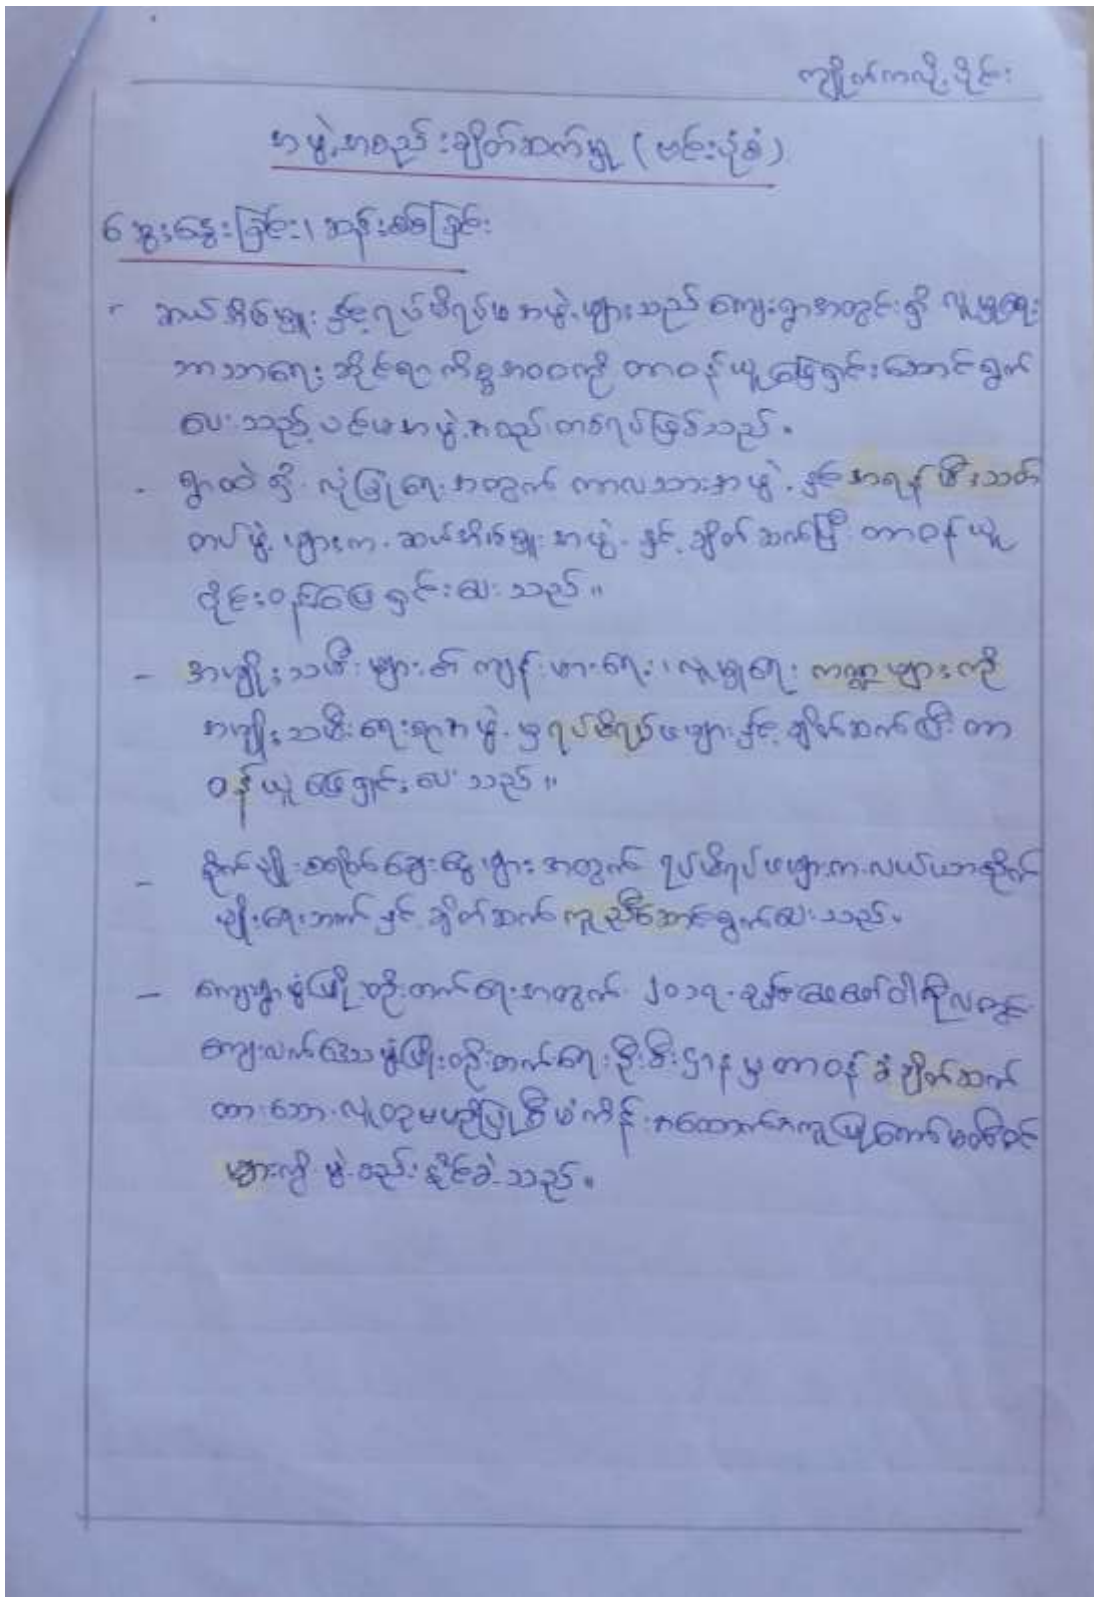 ကျိုက်ကလို့ပိုင်း
အဖွဲ့အစည်းချိတ်ဆက်မှု (ဗင်းပုံစံ)
၆ ဆွေးနွေးခြင်း၊ ဆန်းစစ်ခြင်း
- ဆယ်အိမ်မှူး နှင့် ရပ်မိရပ်ဖ အဖွဲ့များသည် ကျေးရွာအတွင်းရှိ လူမှုရေး
ဘာသာရေး ဆိုင်ရာ ကိစ္စအဝဝကို တာဝန်ယူ ဖြေရှင်းဆောင်ရွက်
ပေးသည့် ပင်မအဖွဲ့အစည်းတစ်ရပ်ဖြစ်သည်။
- ရွာထဲရှိ လုံခြုံရေးအတွက် ကာလသားအဖွဲ့ နှင့် အရန် မီးသတ်
တပ်ဖွဲ့များက ဆယ်အိမ်မှူးအဖွဲ့ နှင့် ချိတ်ဆက်ပြီး တာဝန်ယူ
ဝိုင်းဝန်းဖြေရှင်းပေးသည်။
- အမျိုးသမီးများ၏ ကျန်းမာရေး၊ လူမှုရေး ကဏ္ဍများကို
အမျိုးသမီးရေးရာအဖွဲ့မှ ရပ်မိရပ်ဖများနှင့် ချိတ်ဆက်ပြီး တာ
ဝန်ယူ ဖြေရှင်းပေးသည်။
- စိုက်ပျိုးစရိတ်ချေးငွေများအတွက် ရပ်မိရပ်ဖများက လယ်ယာစိုက်
ပျိုးရေးဘဏ်နှင့် ချိတ်ဆက် ကူညီဆောင်ရွက်ပေးသည်။
- ကျေးရွာဖွံ့ဖြိုးတိုးတက်ရေးအတွက် ၂၀၁၇ ခုနှစ် ဖေဖော်ဝါရီလတွင်
ကျေးလက်ဒေသဖွံ့ဖြိုးတိုးတက်ရေးဦးစီးဌာနမှ တာဝန်ခံချိတ်ဆက်
ထားသော လူထုဗဟိုပြုစီမံကိန်း အထောက်အကူပြုကော်မတီဝင်
များကို ဖွဲ့စည်းနိုင်ခဲ့သည်။